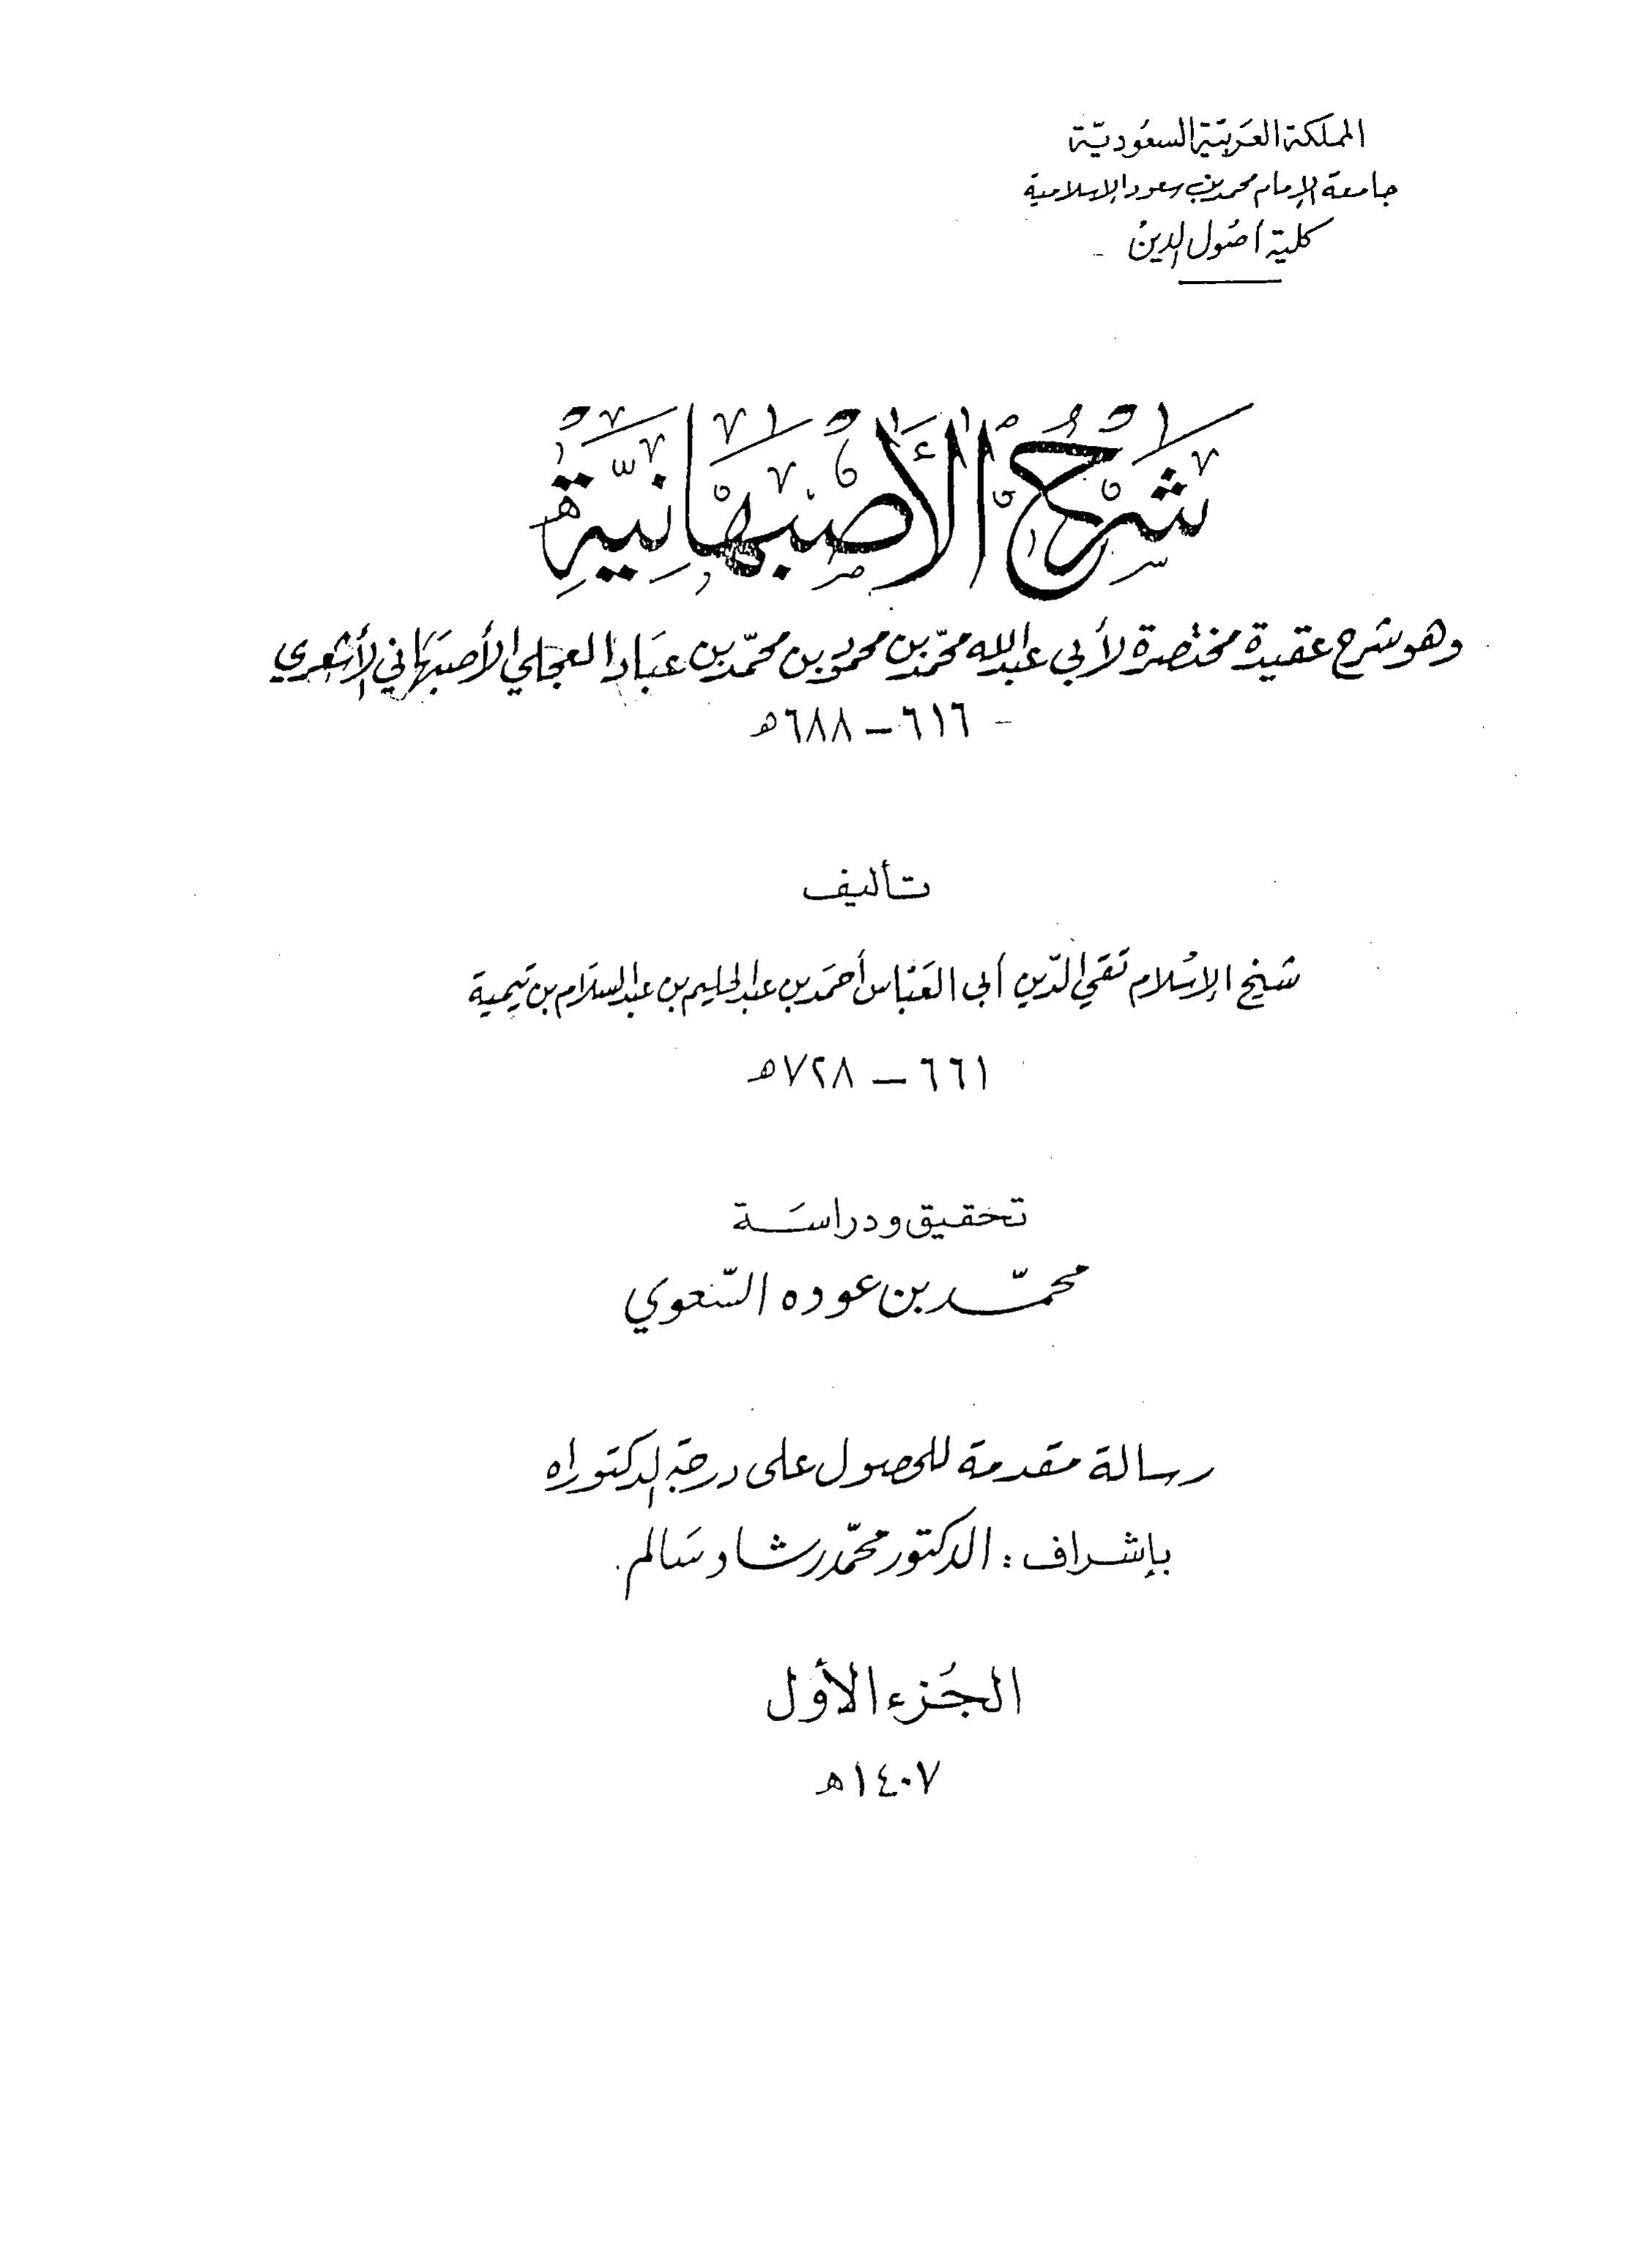 المملكة العَربيَّة السعُوديّة
جامعة الإمام محمد بن سعود الإسلامية
كلية أصُول الدين
شَرْحُ الأَصْبَهَانِيَّةِ
وهو شرح عقيدة مختصرة لأبي عبدالله محمّد بن محمود بن محمّد بن عبَاد العجلي الأصبهَاني الأشعري
٦١٦ – ٦٨٨ھ
تأليف
شيخ الإسْلام تقي الدّين أبي العَبّاس أحمَد بن عبد الحليم بن عبد السلَام بن تيمية
٦٦١ – ٧٢٨ھ
تحقيق ودراسَة
محمّد بن عوده السّعوي
رسالة مقدمة للحصول على درجة الدكتوراه
بإشراف : الدكتور محمّد رشاد سَالم
الجُزء الأوّل
١٤٠٧ھ